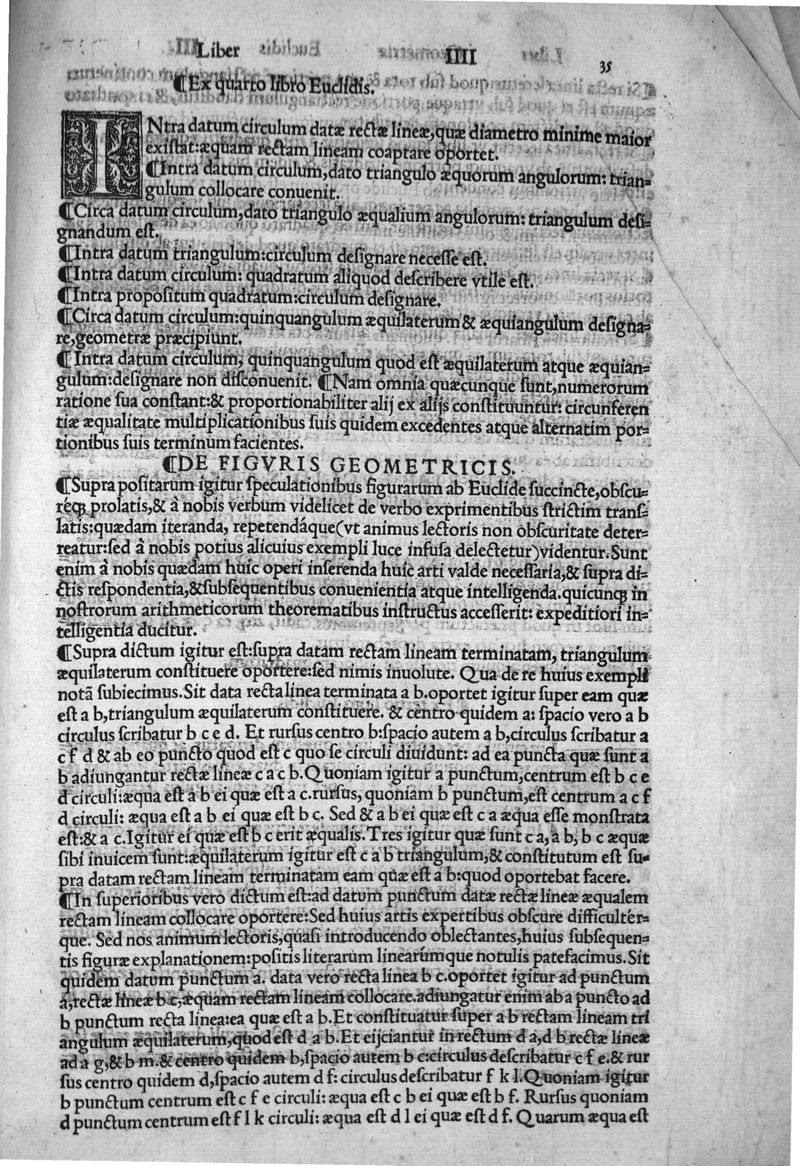 Liber IIII 35
¶Ex quarto libro Euclidis.
INtra datum circulum datæ rectæ lineæ,quæ diametro minime maior
existat:æquam rectam lineam coaptare oportet.
¶Intra datum circulum,dato triangulo æquorum angulorum: trian-
gulum collocare conuenit.
¶Circa datum circulum,dato triangulo æqualium angulorum: triangulum desi-
gnandum est.
¶Intra datum triangulum:circulum designare necesse est.
¶Intra datum circulum: quadratum aliquod describere vtile est.
¶Intra propositum quadratum:circulum designare.
¶Circa datum circulum:quinquangulum æquilaterum & æquiangulum designa-
re,geometræ præcipiunt.
¶Intra datum circulum, quinquangulum quod est æquilaterum atque æquian-
gulum:designare non disconuenit. ¶Nam omnia quæcunque sunt,numerorum
ratione sua constant:& proportionabiliter alij ex alijs constituuntur: circunferen
tiæ æqualitate multiplicationibus suis quidem excedentes atque alternatim por-
tionibus suis terminum facientes.
¶DE FIGVRIS GEOMETRICIS.
¶Supra positarum igitur speculationibus figurarum ab Euclide succincte,obscu-
req; prolatis,& à nobis verbum videlicet de verbo exprimentibus strictim trans-
latis:quædam iteranda, repetendáque(vt animus lectoris non obscuritate deter-
reatur:sed à nobis potius alicuius exempli luce infusa delectetur)videntur.Sunt
enim à nobis quædam huic operi inserenda huic arti valde necessaria,& supra di-
ctis respondentia,&subsequentibus conuenientia atque intelligenda.quicunq; in
nostrorum arithmeticorum theorematibus instructus accesserit: expeditiori in-
telligentia ducitur.
¶Supra dictum igitur est:supra datam rectam lineam terminatam, triangulum
æquilaterum constituere oportere:sed nimis inuolute. Qua de re huius exempli
notã subiecimus.Sit data recta linea terminata a b.oportet igitur super eam quæ
est a b,triangulum æquilaterum constituere. & centro quidem a: spacio vero a b
circulus scribatur b c e d. Et rursus centro b:spacio autem a b,circulus scribatur a
c f d & ab eo puncto quod est c quo se circuli diuidunt: ad ea puncta quæ sunt a
b adiungantur rectæ lineæ c a c b.Quoniam igitur a punctum,centrum est b c e
d circuli:æqua est a b ei quæ est a c.rursus, quoniam b punctum,est centrum a c f
d circuli: æqua est a b ei quæ est b c. Sed & a b ei quæ est c a æqua esse monstrata
est:& a c.Igitur ei quæ est b c erit æqualis.Tres igitur quæ sunt c a, a b, b c æquæ
sibi inuicem sunt:æquilaterum igitur est c a b triangulum,& constitutum est su-
pra datam rectam lineam terminatam eam quæ est a b:quod oportebat facere.
¶In superioribus vero dictum est:ad datum punctum datæ rectæ lineæ æqualem
rectam lineam collocare oportere:Sed huius artis expertibus obscure difficulter-
que. Sed nos animum lectoris,quasi introducendo oblectantes,huius subsequen-
tis figuræ explanationem:positis literarum linearumque notulis patefacimus.Sit
quidem datum punctum a. data vero recta linea b c.oportet igitur ad punctum
a,rectæ lineæ b c,æquam rectam lineam collocare.adiungatur enim ab a puncto ad
b punctum recta linea:ea quæ est a b.Et constituatur super a b rectam lineam tri
angulum æquilaterum,quod est d a b.Et eijciantur in rectum d a,d b rectæ lineæ
ad a g,& b m.& centro quidem b,spacio autem b c:circulus describatur c f e.& rur
sus centro quidem d,spacio autem d f: circulus describatur f k l.Quoniam igitur
b punctum centrum est c f e circuli: æqua est c b ei quæ est b f. Rursus quoniam
d punctum centrum est f l k circuli: æqua est d l ei quæ est d f. Quarum æqua est